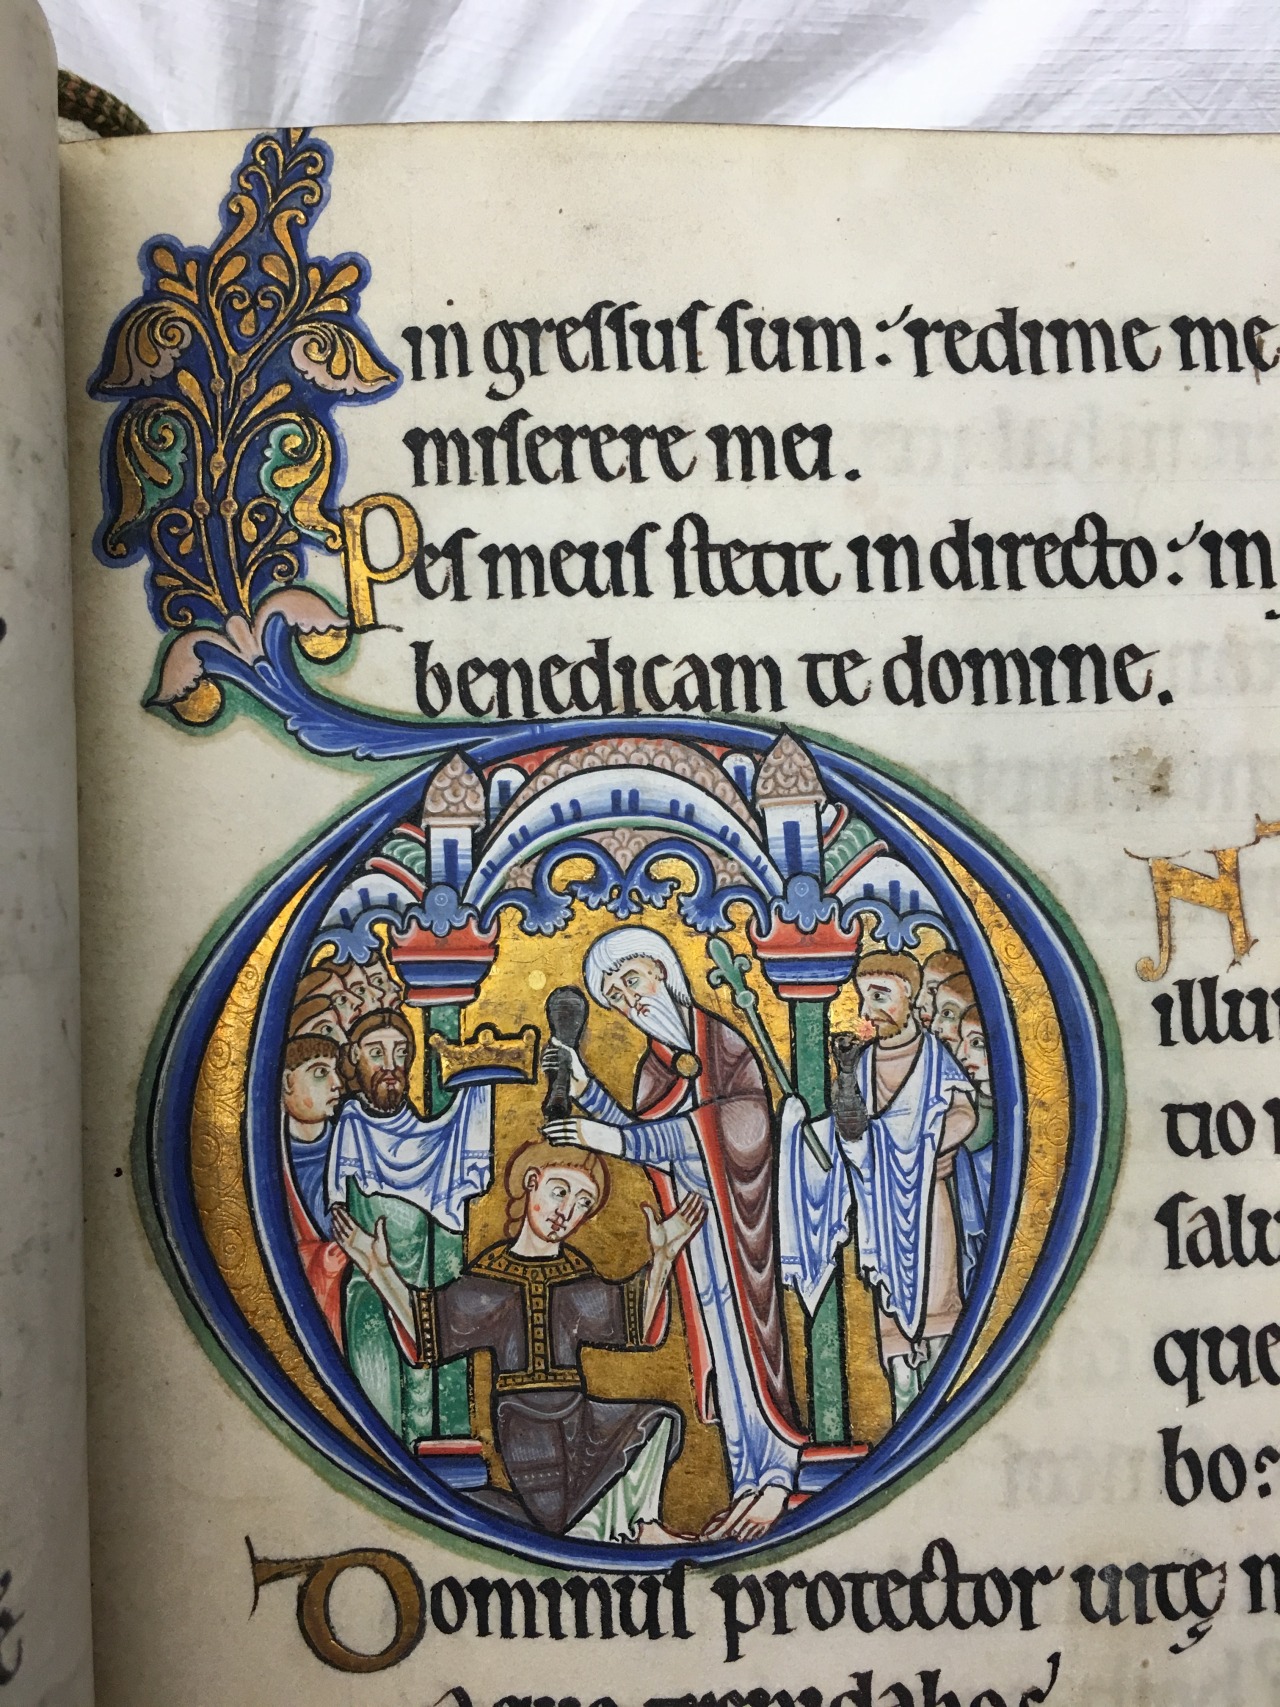 in gressus sum: redime me
miserere mei.
Pes meus stetit in directo: in
benedicam te domine.
D
N
illu
tio
salu
que
bo:
Dominus protector uitę
a quo trepidabo